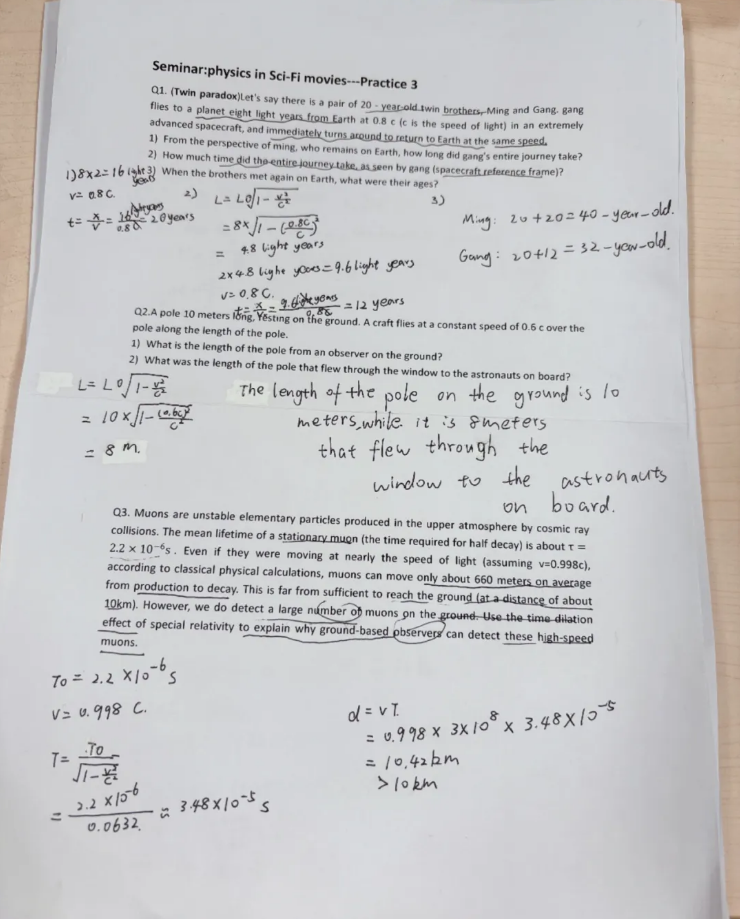 Seminar:physics in Sci-Fi movies---Practice 3
Q1. (Twin paradox)Let's say there is a pair of 20 - year-old twin brothers, Ming and Gang. gang
flies to a planet eight light years from Earth at 0.8 c (c is the speed of light) in an extremely
advanced spacecraft, and immediately turns around to return to Earth at the same speed.
1) From the perspective of ming, who remains on Earth, how long did gang's entire journey take?
2) How much time did the entire journey take, as seen by gang (spacecraft reference frame)?
3) When the brothers met again on Earth, what were their ages?
1) 8x2=16 light years
v= 0.8C.
t= x/v = 16 light years/0.8C = 20years
2) L= L0√1-v²/c²
= 8x√1-(0.8C)²/C²
= 4.8 light years
2x4.8 lighe years=9.6light years
v= 0.8C.
t= x/v = 9.6 light years/0.8C = 12 years
3)
Ming: 20+20=40-year-old.
Gang: 20+12=32-year-old.
Q2.A pole 10 meters long, resting on the ground. A craft flies at a constant speed of 0.6 c over the
pole along the length of the pole.
1) What is the length of the pole from an observer on the ground?
2) What was the length of the pole that flew through the window to the astronauts on board?
L= L0√1-v²/c²
= 10x√1-(0.6c)²/c²
= 8 m.
The length of the pole on the ground is 10
meters, while it is 8meters
that flew through the
window to the astronauts
on board.
Q3. Muons are unstable elementary particles produced in the upper atmosphere by cosmic ray
collisions. The mean lifetime of a stationary muon (the time required for half decay) is about τ =
2.2 x 10⁻⁶s. Even if they were moving at nearly the speed of light (assuming v=0.998c),
according to classical physical calculations, muons can move only about 660 meters on average
from production to decay. This is far from sufficient to reach the ground (at a distance of about
10km). However, we do detect a large number of muons on the ground. Use the time dilation
effect of special relativity to explain why ground-based observers can detect these high-speed
muons.
T0 = 2.2 X10⁻⁶ S
V= 0.998 C.
T= T0/√1-v²/c²
= 2.2 X10⁻⁶/0.0632. ≈ 3.48X10⁻⁵ s
d = vT.
= 0.998 X 3X10⁸ X 3.48X10⁻⁵
= 10.42km
>10km